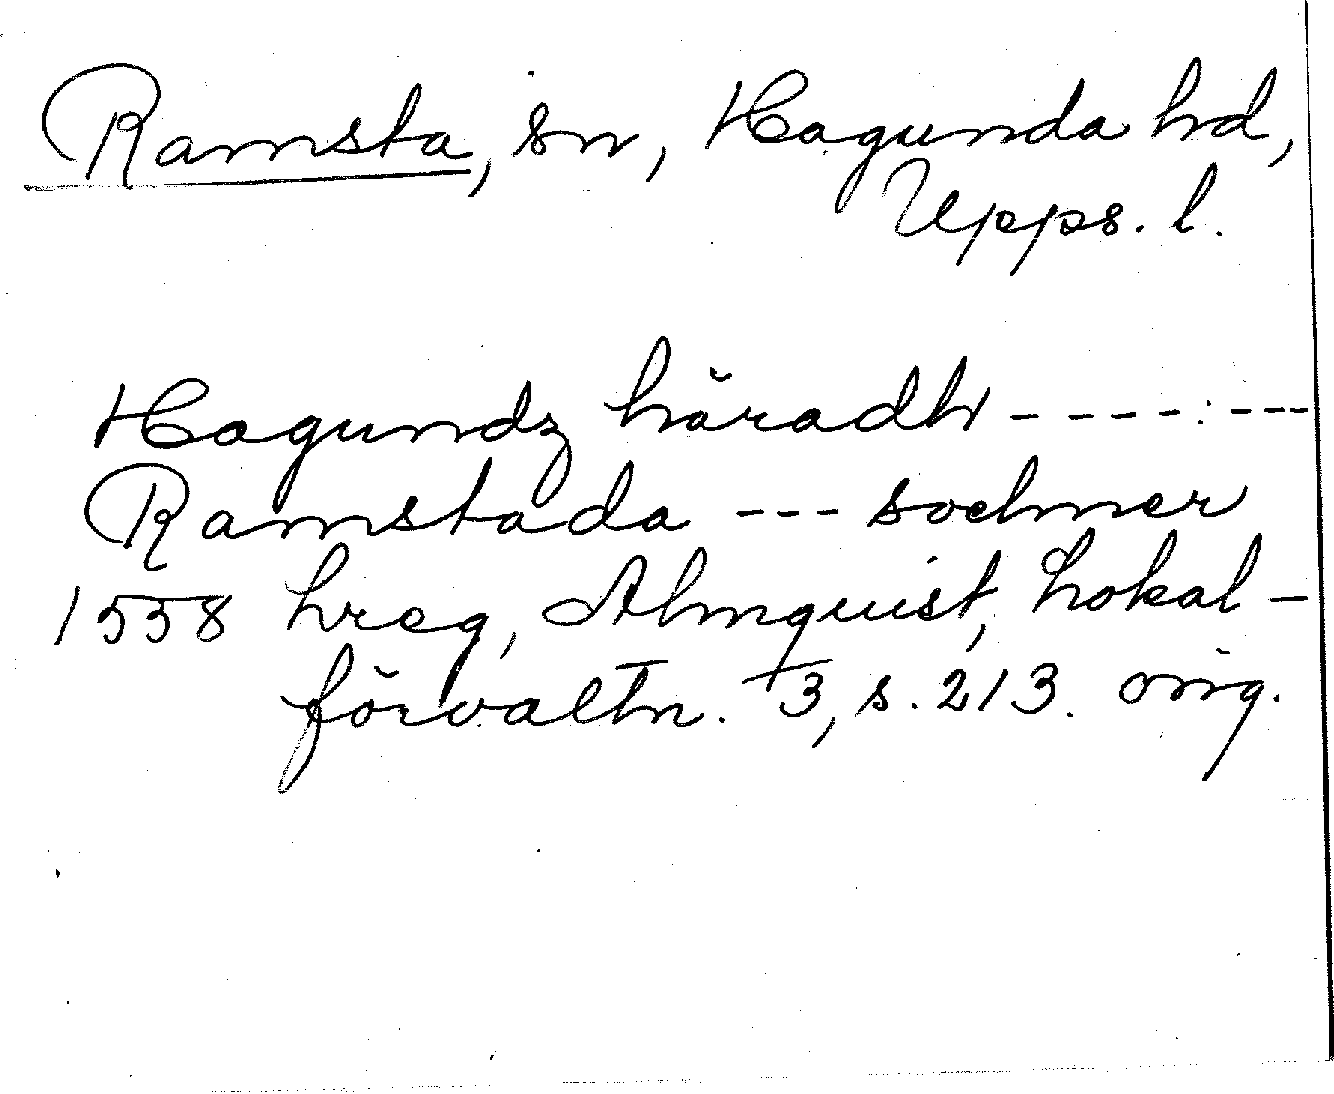 Ramsta, sn, Hagunda hd,
Upps. l.
Hagundz häradh - - - - - - -
Ramstada - - - sochner
1558 hreg, Almquist, Lokal-
förvaltn. 3, s. 213. orig.